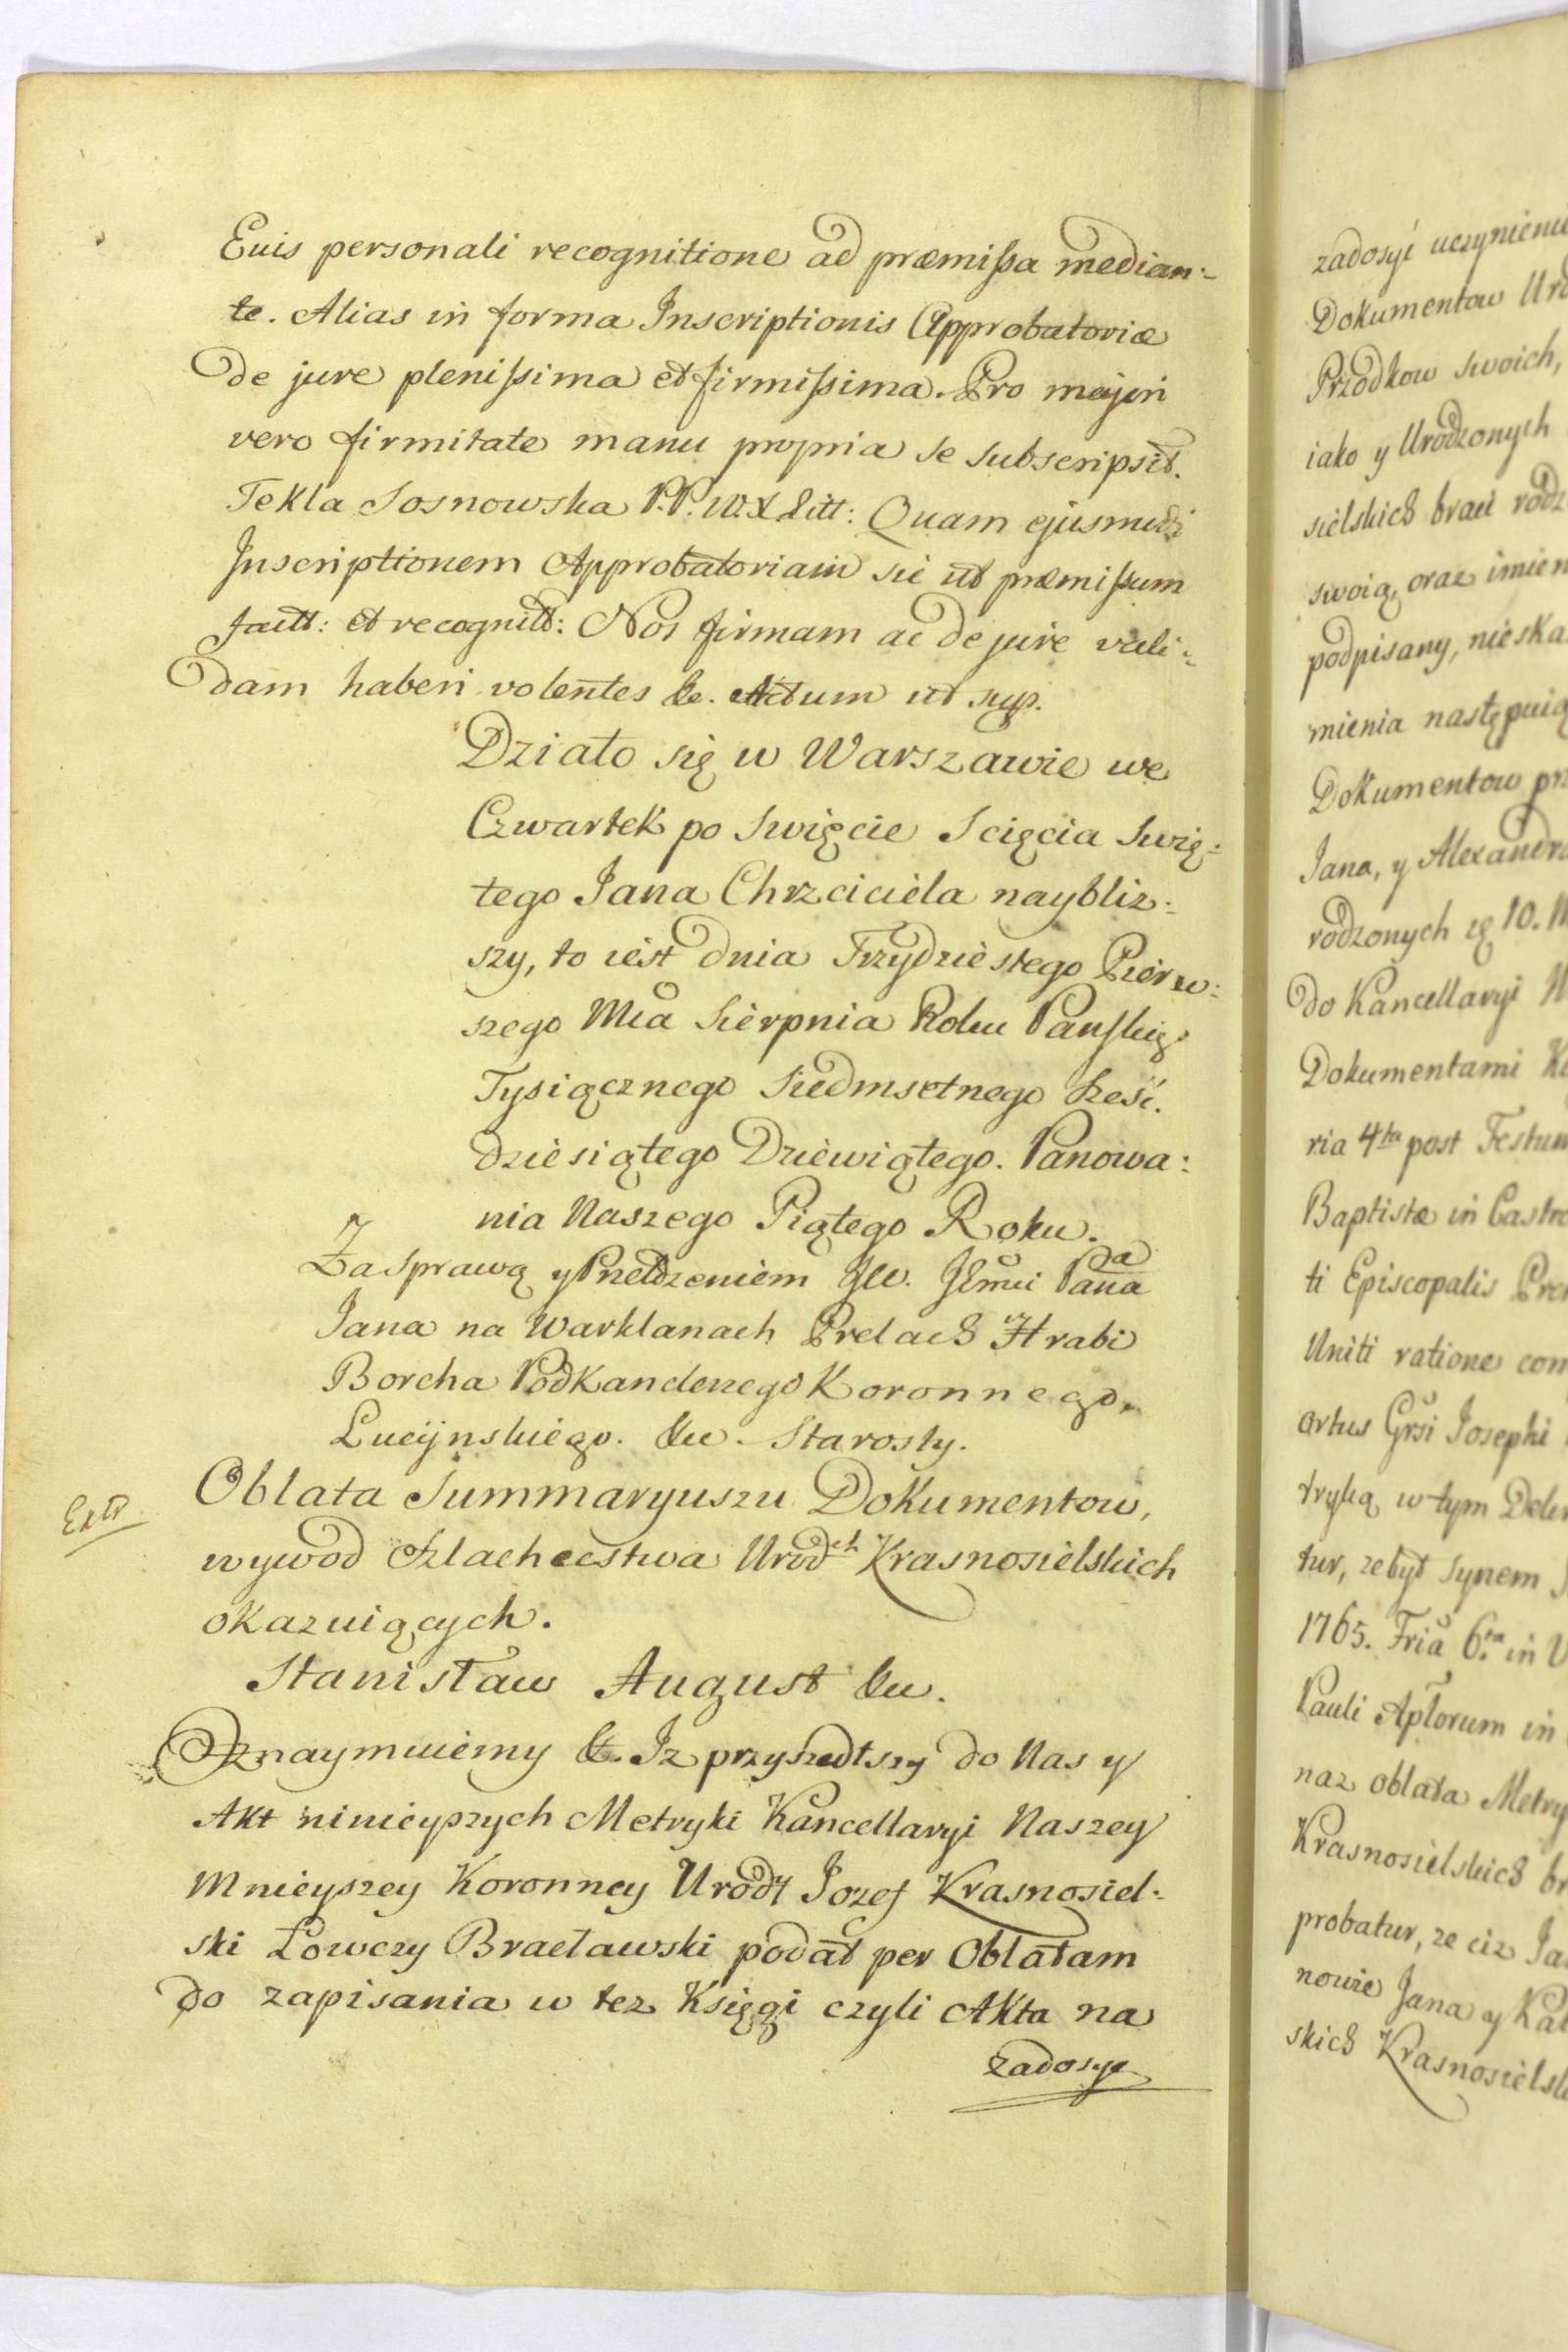 Euis personali recognitione ad præmissa median-
te. Alias in forma Inscriptionis Approbatoriæ
de jure plenissima et firmissima. Pro majori
vero firmitate manu propria se subscripsit.
Tekla Sosnowska P.P.W.X Litt: Quam ejusmodi
Inscriptionem Approbatoriam sic ut præmissum
factt: et recognitt: Nos firmam ac de jure vali-
dam haberi volentes &c. Actum ut sup.
Działo się w Warszawie we
Czwartek po Swięcie Scięcia Swię-
tego Jana Chrzciciela naybliz-
szy, to iest dnia Trzydziestego Pierw-
szego Mca Sierpnia Roku Panskieg:
Tysiącznego Siedmsetnego Sześć.
dziesiątego Dziewiątego. Panowa:
nia Naszego Piątego Roku.
Za Sprawą y Przełożeniem JW. Jmci Pana
Jana na Warklanach Prelach Hrabi
Borcha Podkanclerzego Koronnego,
Lucijnskiego. &c. Starosty.
Extr.
Oblata Summaryuszu Dokumentow,
wywod Szlachecstwa Urodch Krasnosielskich
okazuiących.
Stanisław August &c.
Oznaymuiemy &c. Iz przyszedłszy do Nas y
Akt ninieyszych Metryki Kancellaryi Naszey
Mnieyszey Koronney Urody Jozef Krasnosiel-
ski Łowczy Bracławski podał per Oblatam
do zapisania w tez Księgi czyli Akta na
zadosyc
zadosyć uczynieniu
Dokumentow Uro
Przodkow swoich,
iako y Urodzonych
sielskich braci rodz
swoią, oraz imien
podpisany, nieska
mienia następuią
Dokumentow prz
Jana, y Alexandra
rodzonych są 10. M
do Kancellaryi
Dokumentami
ria 4ta post Festum
Baptistæ in Castre
ti Episcopalis
Uniti ratione com
ortus Grsi Josephi
tryką w tym
tur, ze był Synem
1765. Fria 6ta in
Pauli Aplorum in
naz oblata Metry
Krasnosielskich br
probatur, ze ciz Ja
nowie Jana y
skich Krasnosielsk